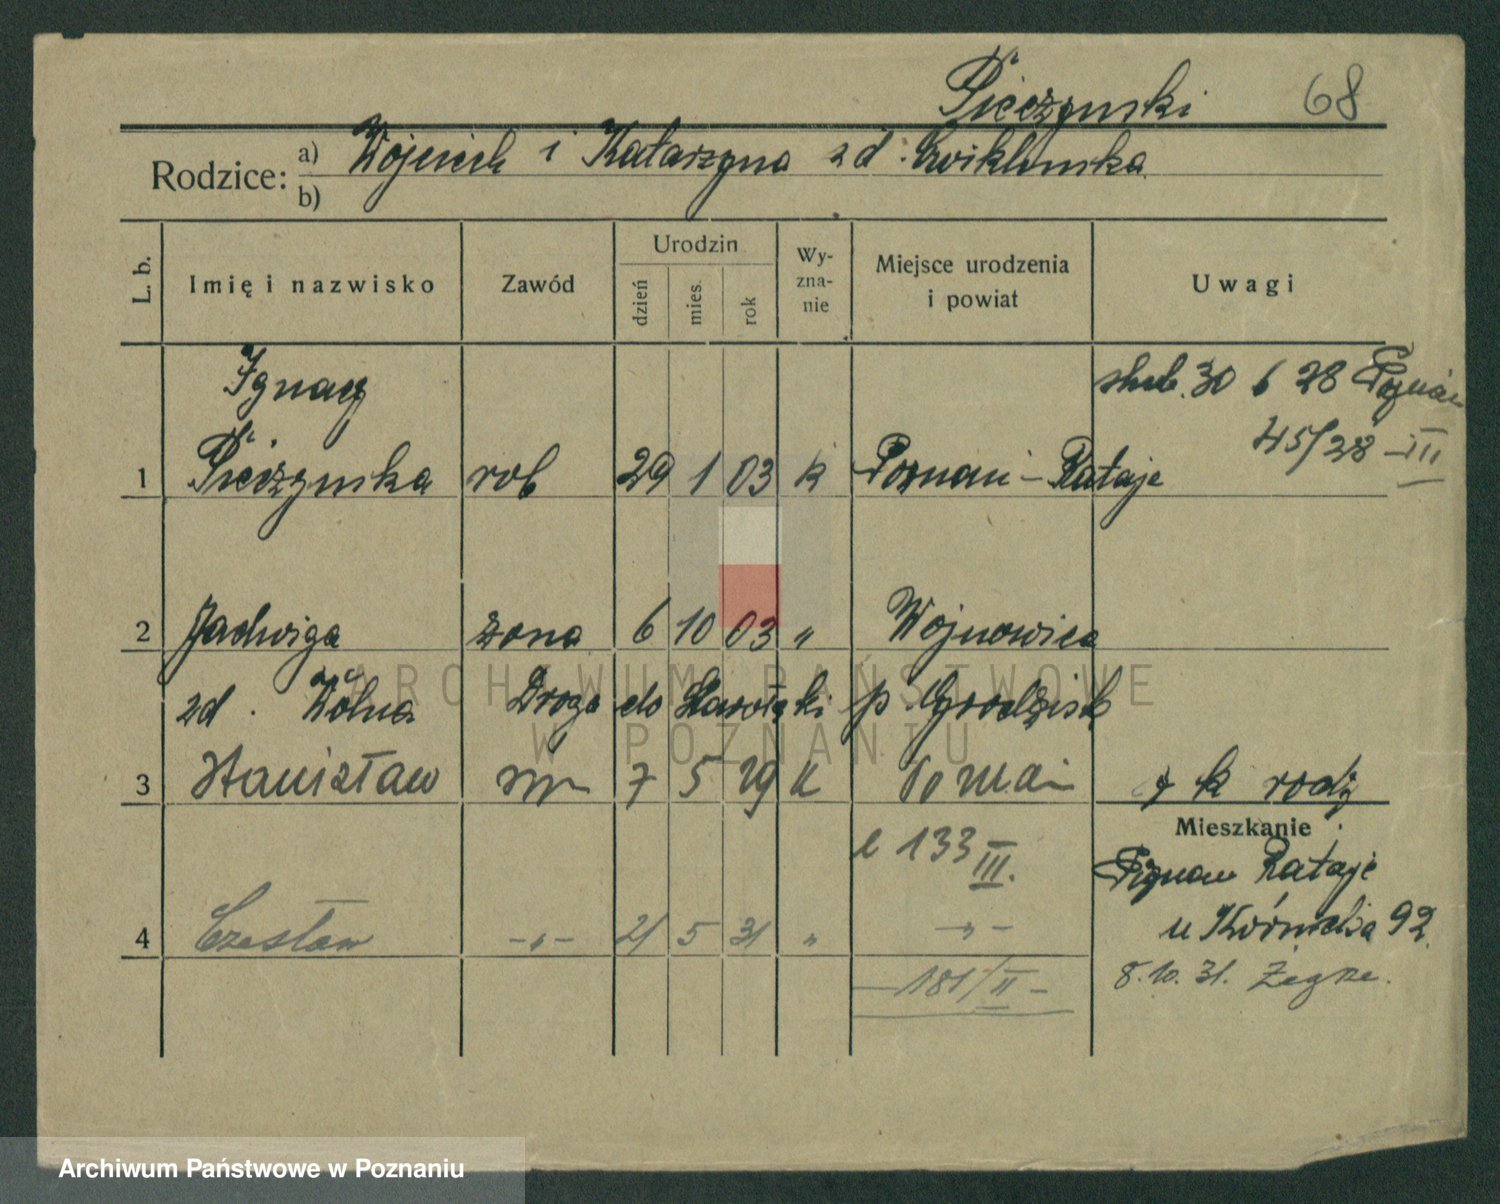 Pieczyński 68
Rodzice: a) Wojciech i Katarzyna zd. Ćwiklińska
b)
L. b. Imię i nazwisko Zawód Urodzin dzień mies. rok Wy-zna-nie Miejsce urodzenia i powiat Uwagi
Ignacy ślub. 30 6 28 Poznań
45/28 - III
1 rob 29 1 03 k Poznań - Rataje
2 Jadwiga żona 6 10 03 " Wojnowice
zd. Wólna Droga do p Grodzisk
3 Stanisław syn 7 5 29 k Poznań k rodz
133 III.
Mieszkanie
Poznań Rataje
4 Czesław -"- 21 5 31 " -"-
u Kórnicka 92
- 181/II -
8.10.31. Żegrze.
ARCHIWUM PAŃSTWOWE
W POZNANIU
Archiwum Państwowe w Poznaniu